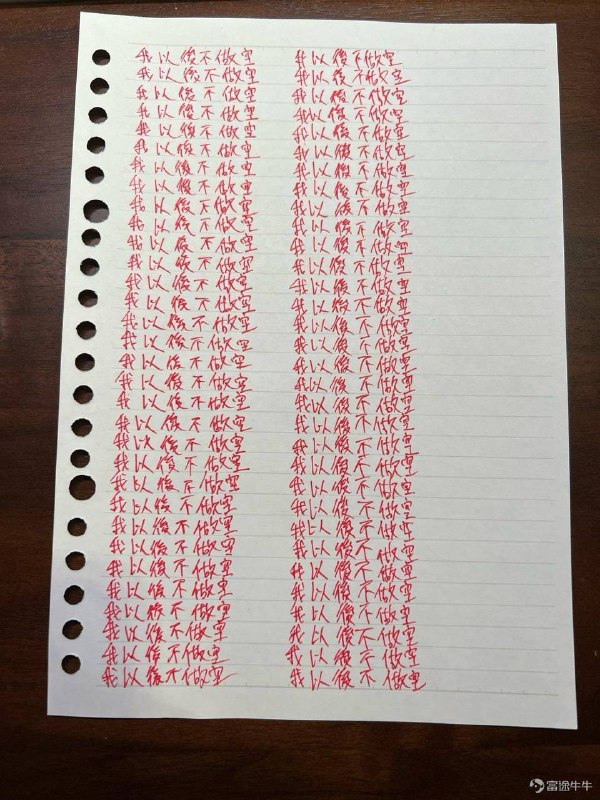 我以後不做空
我以後不做空
我以後不做空
我以後不做空
我以後不做空
我以後不做空
我以後不做空
我以後不做空
我以後不做空
我以後不做空
我以後不做空
我以後不做空
我以後不做空
我以後不做空
我以後不做空
我以後不做空
我以後不做空
我以後不做空
我以後不做空
我以後不做空
我以後不做空
我以後不做空
我以後不做空
我以後不做空
我以後不做空
我以後不做空
我以後不做空
我以後不做空
我以後不做空
我以後不做空
我以後不做空
我以後不做空
我以後不做空
我以後不做空
我以後不做空
我以後不做空
我以後不做空
我以後不做空
我以後不做空
我以後不做空
我以後不做空
我以後不做空
我以後不做空
我以後不做空
我以後不做空
我以後不做空
我以後不做空
我以後不做空
我以後不做空
我以後不做空
我以後不做空
我以後不做空
我以後不做空
我以後不做空
我以後不做空
我以後不做空
我以後不做空
我以後不做空
我以後不做空
我以後不做空
我以後不做空
我以後不做空
我以後不做空
我以後不做空
富途牛牛